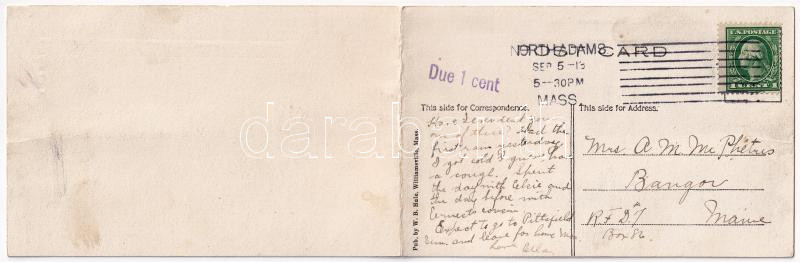 NORTH ADAMS
SEP 5 -13
5-30PM
MASS
POST CARD
U.S. POSTAGE
1 CENT 1
Due 1 cent
This side for Correspondence.
This side for Address.
Have I ever sent you
one of these? Had the
first rain yesterday
I got cold I guess has
a cough. Spent
the day with Elsie and
the day before with
cousin
Expect to go to Pittsfield
Sun. and leave for home Mon.
Love Ella
Mrs. A M McPhetres
Bangor
R F D 7 Maine
Box 86.
Pub. by W. B. Hale, Williamsville, Mass.
darabanth